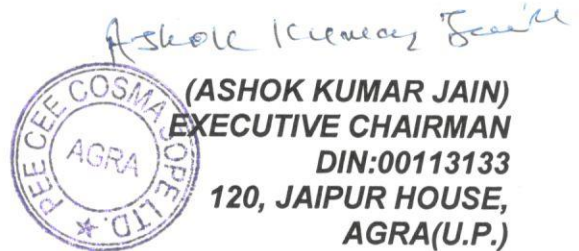 Ashok Kumar Jain
(ASHOK KUMAR JAIN)
EXECUTIVE CHAIRMAN
DIN:00113133
120, JAIPUR HOUSE,
AGRA(U.P.)
PEE CEE COSMA SOPE LTD.
AGRA